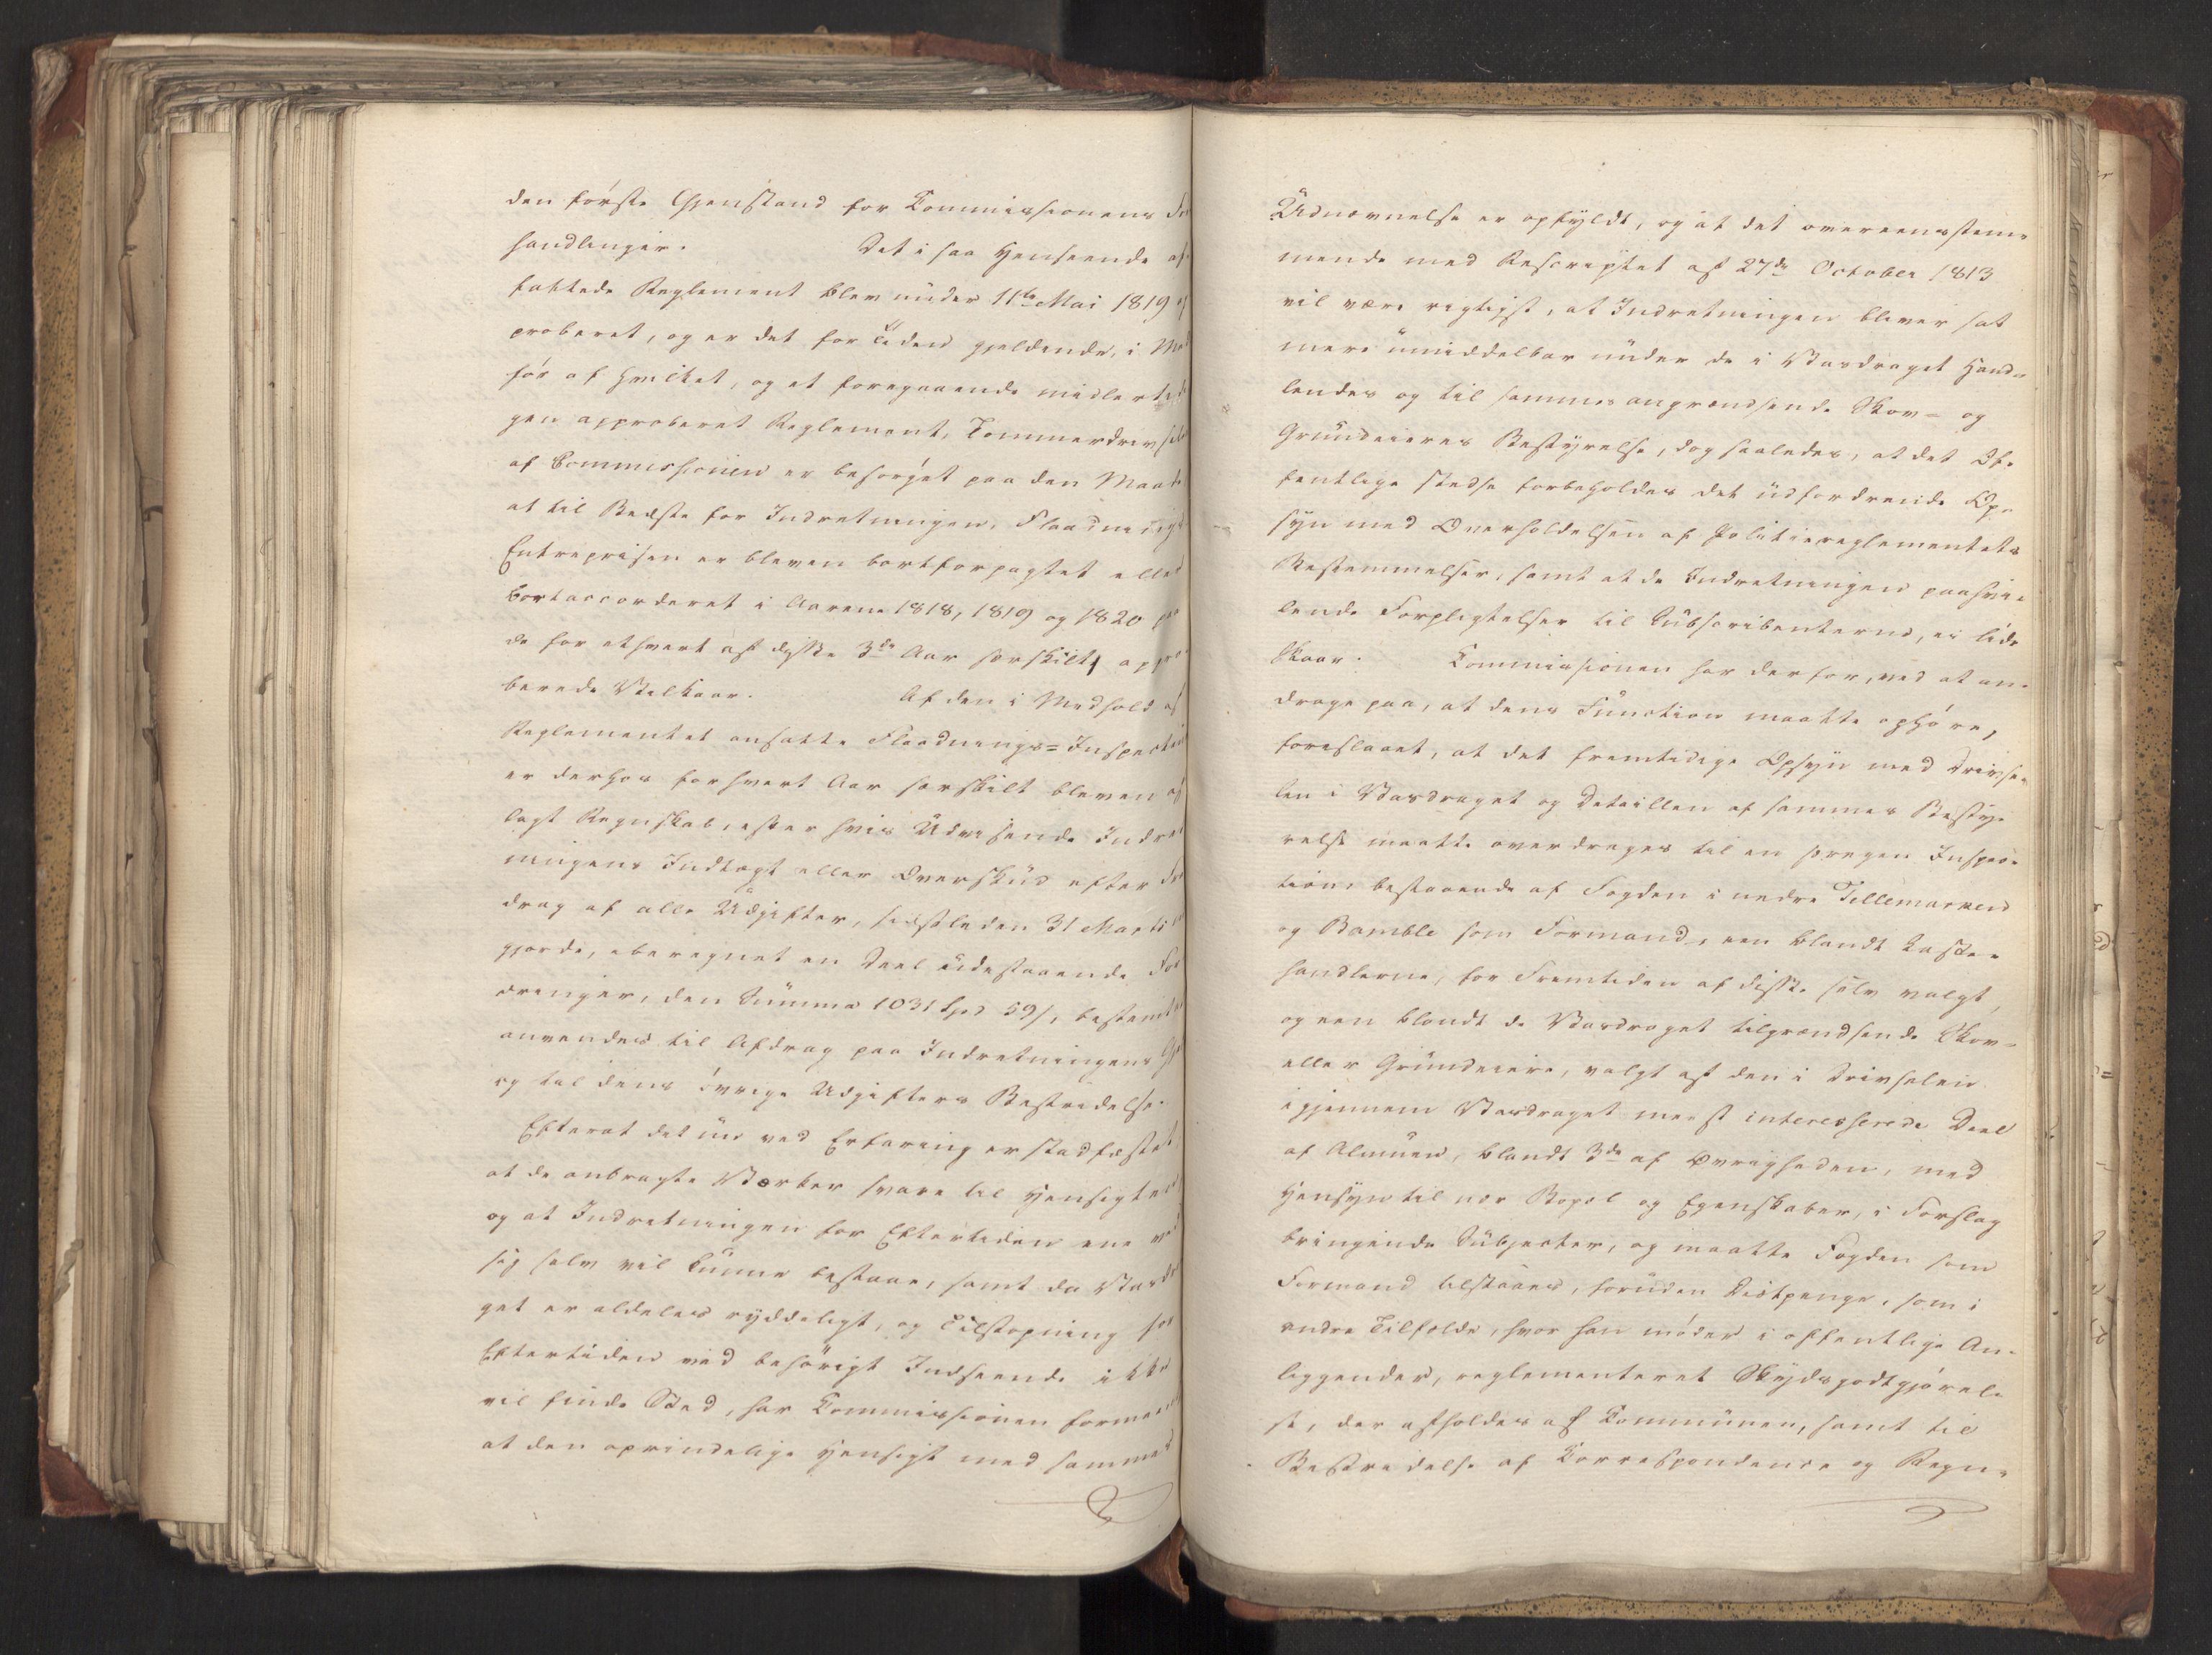 den første Gjenstand for Commissionens For
handlinger. Det i saa Henseende af
fattede Reglement blev under 11te Mai 1819 ap
proberet, og er det for Tiden gjeldende, i Med
før af hvilket, og et foregaaende midlertidi
gen approberet Reglement, Tømmerdrivselen
af Commissionen er besørget paa den Maade
at til Bedste for Indretningen, Flaadnings
Entreprisen er bleven bortforpagtet eller
bortaccorderet i Aarene 1818, 1819 og 1820 paa
de for ethvert af disse 3de Aar særskilt appro
berede Vilkaar. Af den i Medhold af
Reglementet ansatte Flaadnings-Inspecteur
er derhos for hvert Aar særskilt bleven af
lagt Regnskab, efter hvis Udvisende Indret
ningens Indtægt eller Overskud efter Fra
drag af alle Udgifter, sidstleden 31 Marti
gjorde, uberegnet en Deel udestaaende For
dringer, den Summa 1031 Spd 59 s, bestemt
anvendes til Afdrag paa Indretningens Gje
og til dens øvrige Udgifters Bestridelse.
Efterat det nu ved Erfaring er stadfæstet
at de anbragte Værker svare til Hensigten
og at Indretningen for Eftertiden ene ved
sig selv vil kunne bestaae, samt da Vasdra
get er aldeles ryddeligt, og Tilstopning for
Eftertiden ved behørigt Indseende ikke
vil finde Sted, har Commissionen formeent
at den oprindelige Hensigt med sammes
Udnævnelse er opfyldt, og at det overeensstem-
mende med Rescriptet af 27de October 1813
vil være rigtigst, at Indretningen bliver sat
mere umiddelbar under de i Vasdraget Hand-
lendes og til sammes angrændsende Skov- og
Grundeieres Bestyrelse, dog saaledes, at det Of-
fentlige stedse forbeholdes det udfordrende Op-
syn med Overholdelsen af Politiereglementets
Bestemmelser, samt at de Indretningen paahvi-
lende Forpligtelser til Subscribenterne, ei lide
Skaar. Commissionen har derfor, ved at an-
drage paa, at dens Function maatte ophøre,
foreslaaet, at det fremtidige Opsyn med Drivse-
len i Vasdraget og Detaillen af sammes Besty-
relse maatte overdrages til en særegen Inspec-
tion, bestaaende af Fogden i nedre Tellemarken
og Bamble som Formand, een blandt Laste-
handlerne, for Fremtiden af disse selv valgt,
og een blandt de Vasdraget tilgrændsende Skov-
eller Grundeiere, valgt af den i Drivselen
igjennem Vasdraget meest interesserede Deel
af Almuen, blandt 3de af Øvrigheden, med
Hensyn til nær Bopæl og Egenskaber, i Forslag
bringende Subjecter, og maatte Fogden som
Formand tilstaaes, foruden Diætpenge, som i
andre Tilfælde, hvor han møder i offentlige An-
liggender, reglementeret Skydsgodtgjørel-
se, der afholdes af Communen, samt til
Bestridelse af Correspondence og Regn-